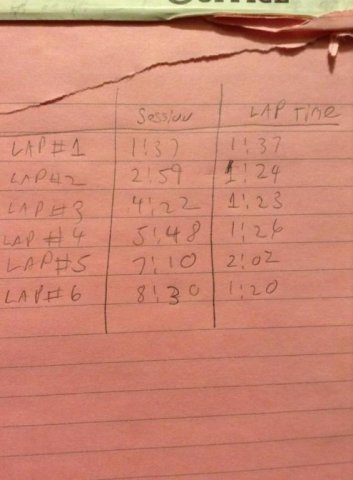 OFFICE
Session LAP Time
LAP #1 1:37 1:37
LAP #2 2:59 1:24
LAP #3 4:22 1:23
LAP #4 5:48 1:26
LAP #5 7:10 2:02
LAP #6 8:30 1:20